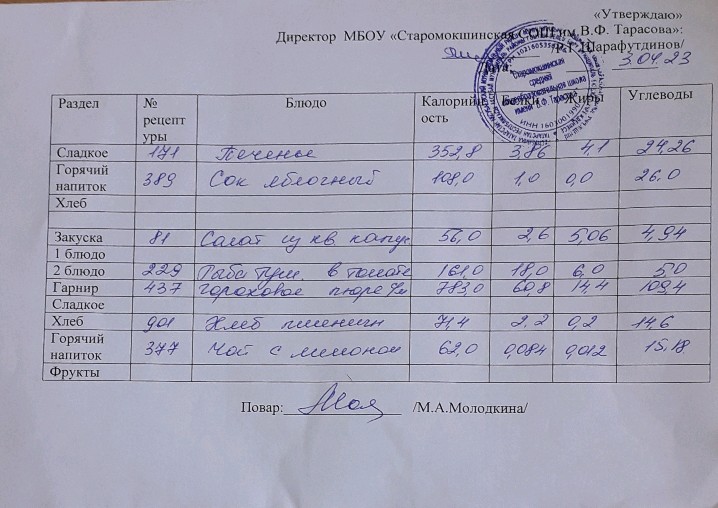 «Утверждаю»
Директор МБОУ «Старомокшинская СОШ им В.Ф. Тарасова»:
/Р.Г.Шарафутдинов/
3.04.23
Старомокшинская
средняя
общеобразовательная школа
имени В.Ф. Тарасова
Раздел № рецептуры Блюдо Калорийность Белки Жиры Углеводы
Сладкое 171 Печенье 352,8 3,86 4,1 24,26
Горячий напиток 389 Сок яблочный 108,0 1,0 0,0 26,0
Хлеб
Закуска 81 Салат из кв капус 56,0 2,6 5,06 4,94
1 блюдо
2 блюдо 229 Рыба туш. в томате 161,0 18,0 6,0 5,0
Гарнир 437 гороховое пюре 783,0 60,8 14,4 109,4
Сладкое
Хлеб 901 Хлеб пшеничн 71,4 2,2 0,2 14,6
Горячий напиток 377 Чай с лимоном 62,0 0,084 0,012 15,18
Фрукты
Повар: /М.А.Молодкина/